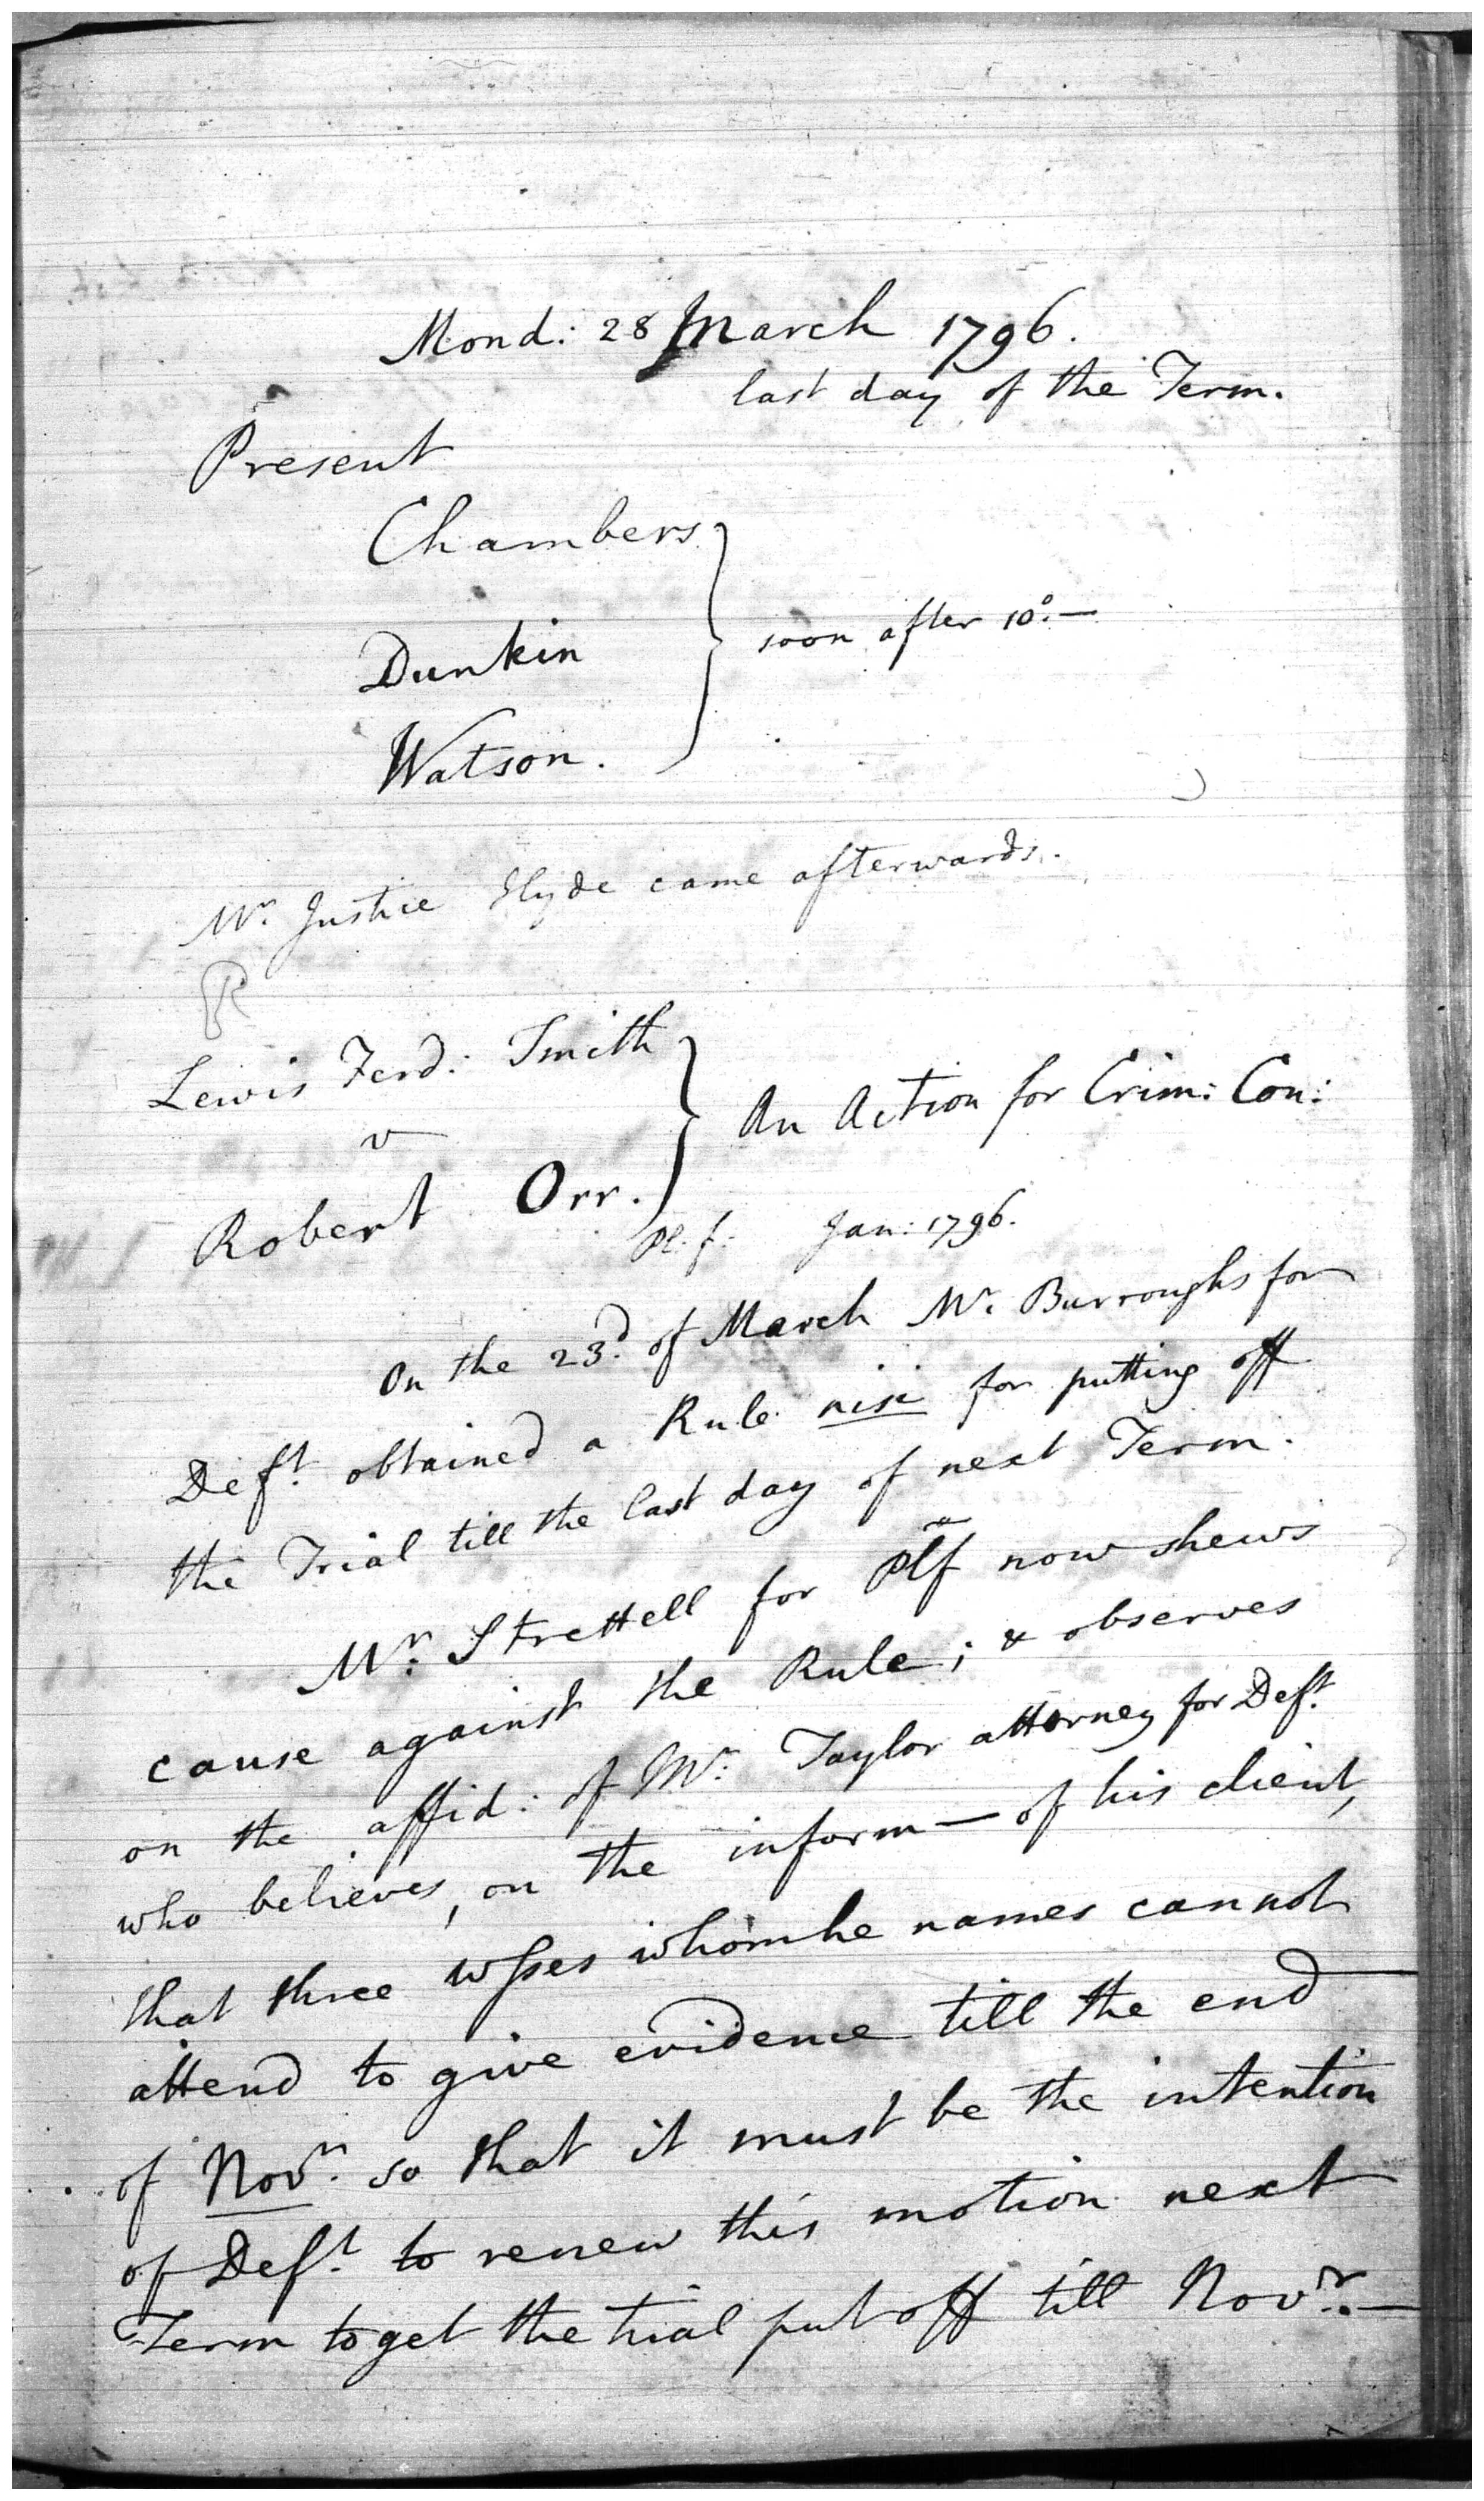 Mond: 28 March 1796.
last day of the Term.
Present
Chambers
Dunkin
soon after 10°.—
Watson.
Mr. Justice Hyde came afterwards.
Lewis Ferd: Smith
v
An Action for Crim: Con:
Robert Orr.
Pl. f: Jan: 1796.
On the 23d. of March Mr. Burroughs for
Deft. obtained a Rule nisi for putting off
the Trial till the last day of next Term.
Mr. Strettell for Plf now shews
cause against the Rule; & observes
on the affid: of Mr. Taylor attorney for Deft.
who believes, on the inform— of his client,
that three wsses whom he names cannot
attend to give evidence till the end
of Novr. so that it must be the intention
of Deft. to renew this motion next
Term to get the trial put off till Novr.—